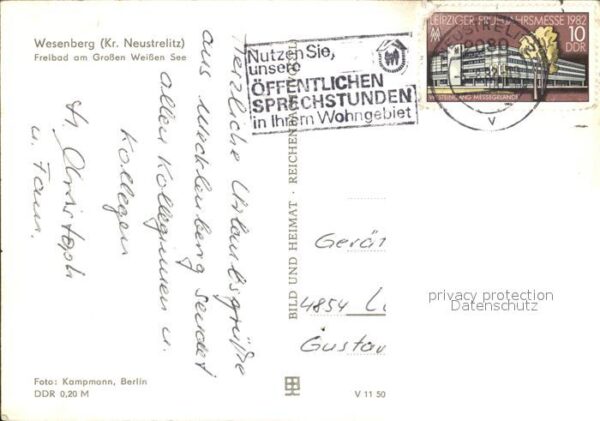 Wesenberg (Kr. Neustrelitz)
Freibad am Großen Weißen See
Herzliche Urlaubsgrüße
aus Mecklenburg sendet
allen Kolleginnen u.
Kollegen
Christoph
u. Fam.
Foto: Kampmann, Berlin
DDR 0,20 M
BILD UND HEIMAT · REICHENBACH
V 11 50
Nutzen Sie,
unsere
ÖFFENTLICHEN
SPRECHSTUNDEN
in Ihrem Wohngebiet
LEIPZIGER FRÜHJAHRSMESSE 1982
10
DDR
WESTEINGANG MESSEGELÄNDE
NEUSTRELITZ
2080
Gerät
4854 Lü
Gustav
privacy protection
Datenschutz